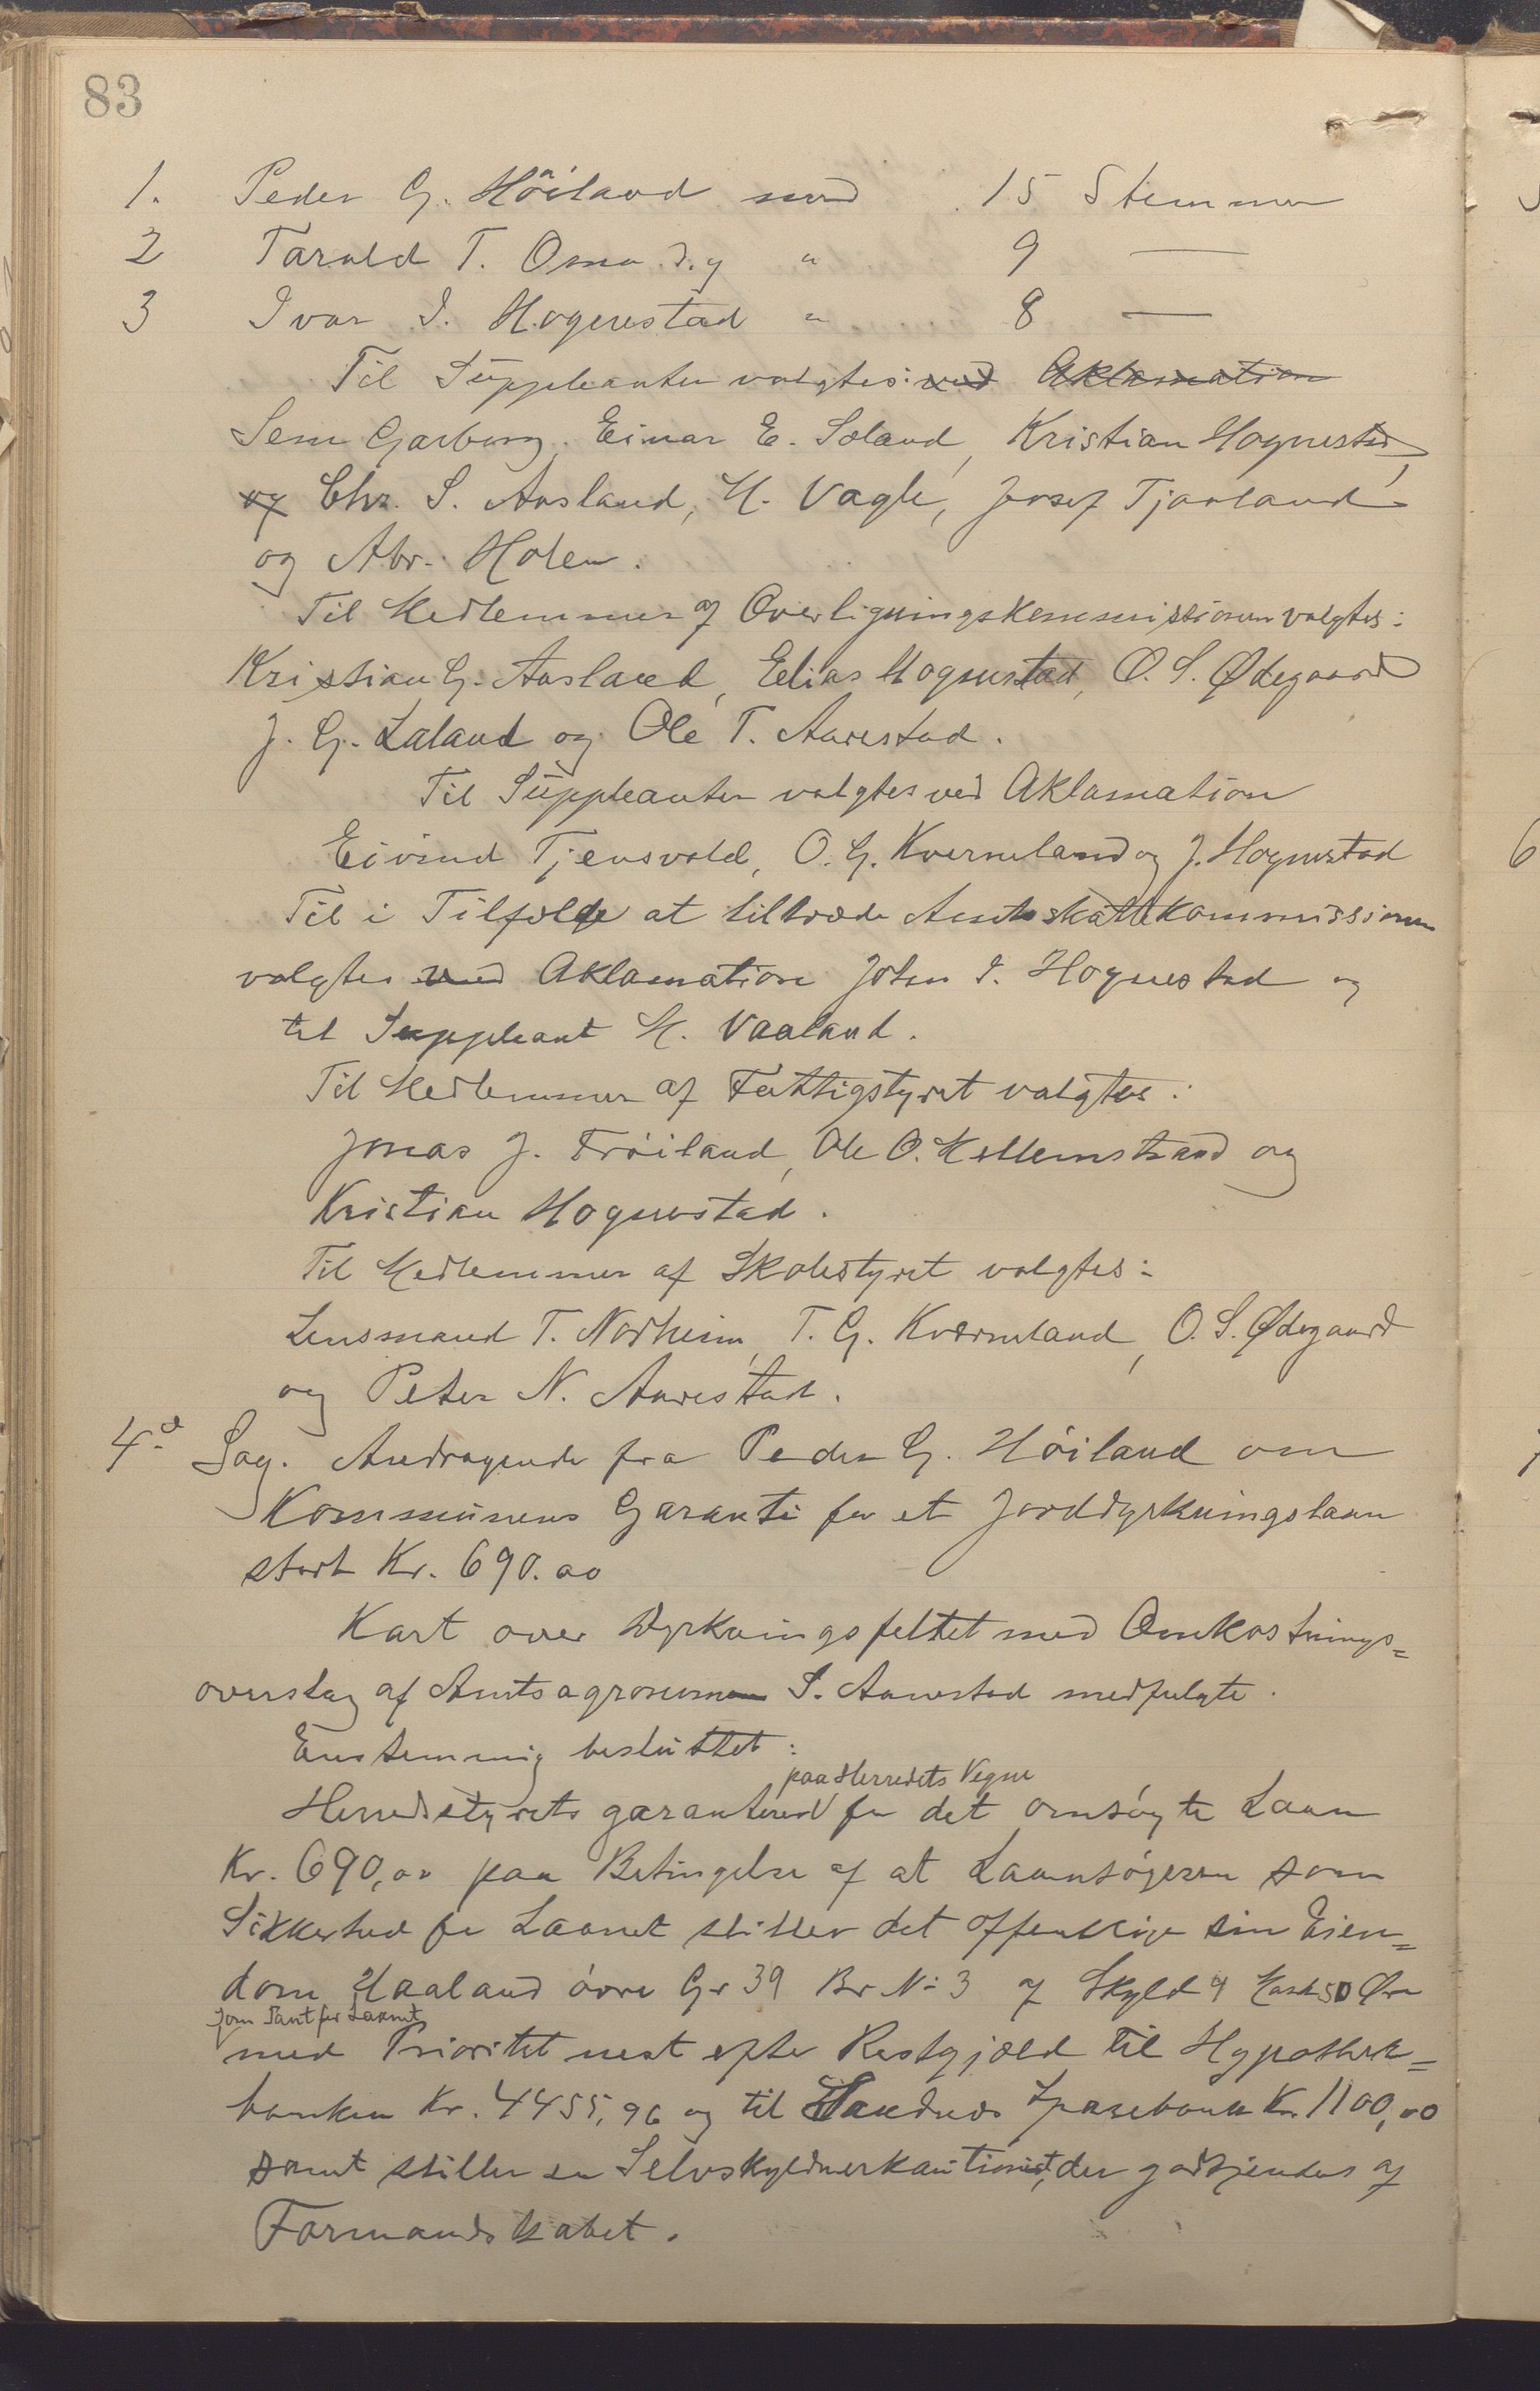 83
1. Peder G. Höiland med 15 Stemmer
2 Tarald T. Omu d.y " 9 —
3 Ivar I. Hognestad " 8 —
Til Suppleanter valgtes: ved Aklamation
Sem Garborg, Einar E. Soland, Kristian Hognestad,
og Chr. S. Aasland, H. Vagle, Josef Tjaaland
og Abr. Holen.
Til Medlemmer af Overligningskommissionen valgtes:
Kristian G. Aasland, Elias Hognestad, O. S. Ødegaard
J. G. Laland og Ole T. Aarestad.
Til Suppleanter valgtes ved Aklamation
Eivind Tjensvold, O. G. Kverneland og J. Hognestad
Til i Tilfælde at tiltræde Amtsskattekommissionen
valgtes ved Aklamation John I. Hognestad og
til Suppleant M. Vaaland.
Til Medlemmer af Fattigstyret valgtes:
Jonas J. Fröiland, Ole O. Mellemstrand og
Kristian Hognestad.
Til Medlemmer af Skolestyret valgtes:
Lensmand T. Norheim, T. G. Kverneland, O. S. Ødegaard
og Peter N. Aarestad.
4d Sag. Andragende fra Peder G. Höiland om
Kommunens Garanti for et Jorddyrkningslaan
stort Kr. 690.00
Kart over Dyrkningsfeltet med Omkostnings=
overslag af Amtsagronom S. Aarestad medfulgte.
Enstemmig besluttet:
paa Herredets Vegne
Herredsstyrets garanterer for det omsögte Laan
Kr. 690,00 paa Betingelse af at Laansögeren som
Sikkerhed for Laanet stiller det offentlige sin Eien=
dom Haaland övre Gr 39 Br No 3 af Skyld 4 Mark 50 Øre
som Pant for Laanet
med Prioritet nest efter Restgjæld til Hypothek=
banken Kr. 4455,96 og til Sandnes Sparebank Kr. 1100,00
samt stiller en Selvskyldnerkautionist, der godkjendes af
Formandskabet.